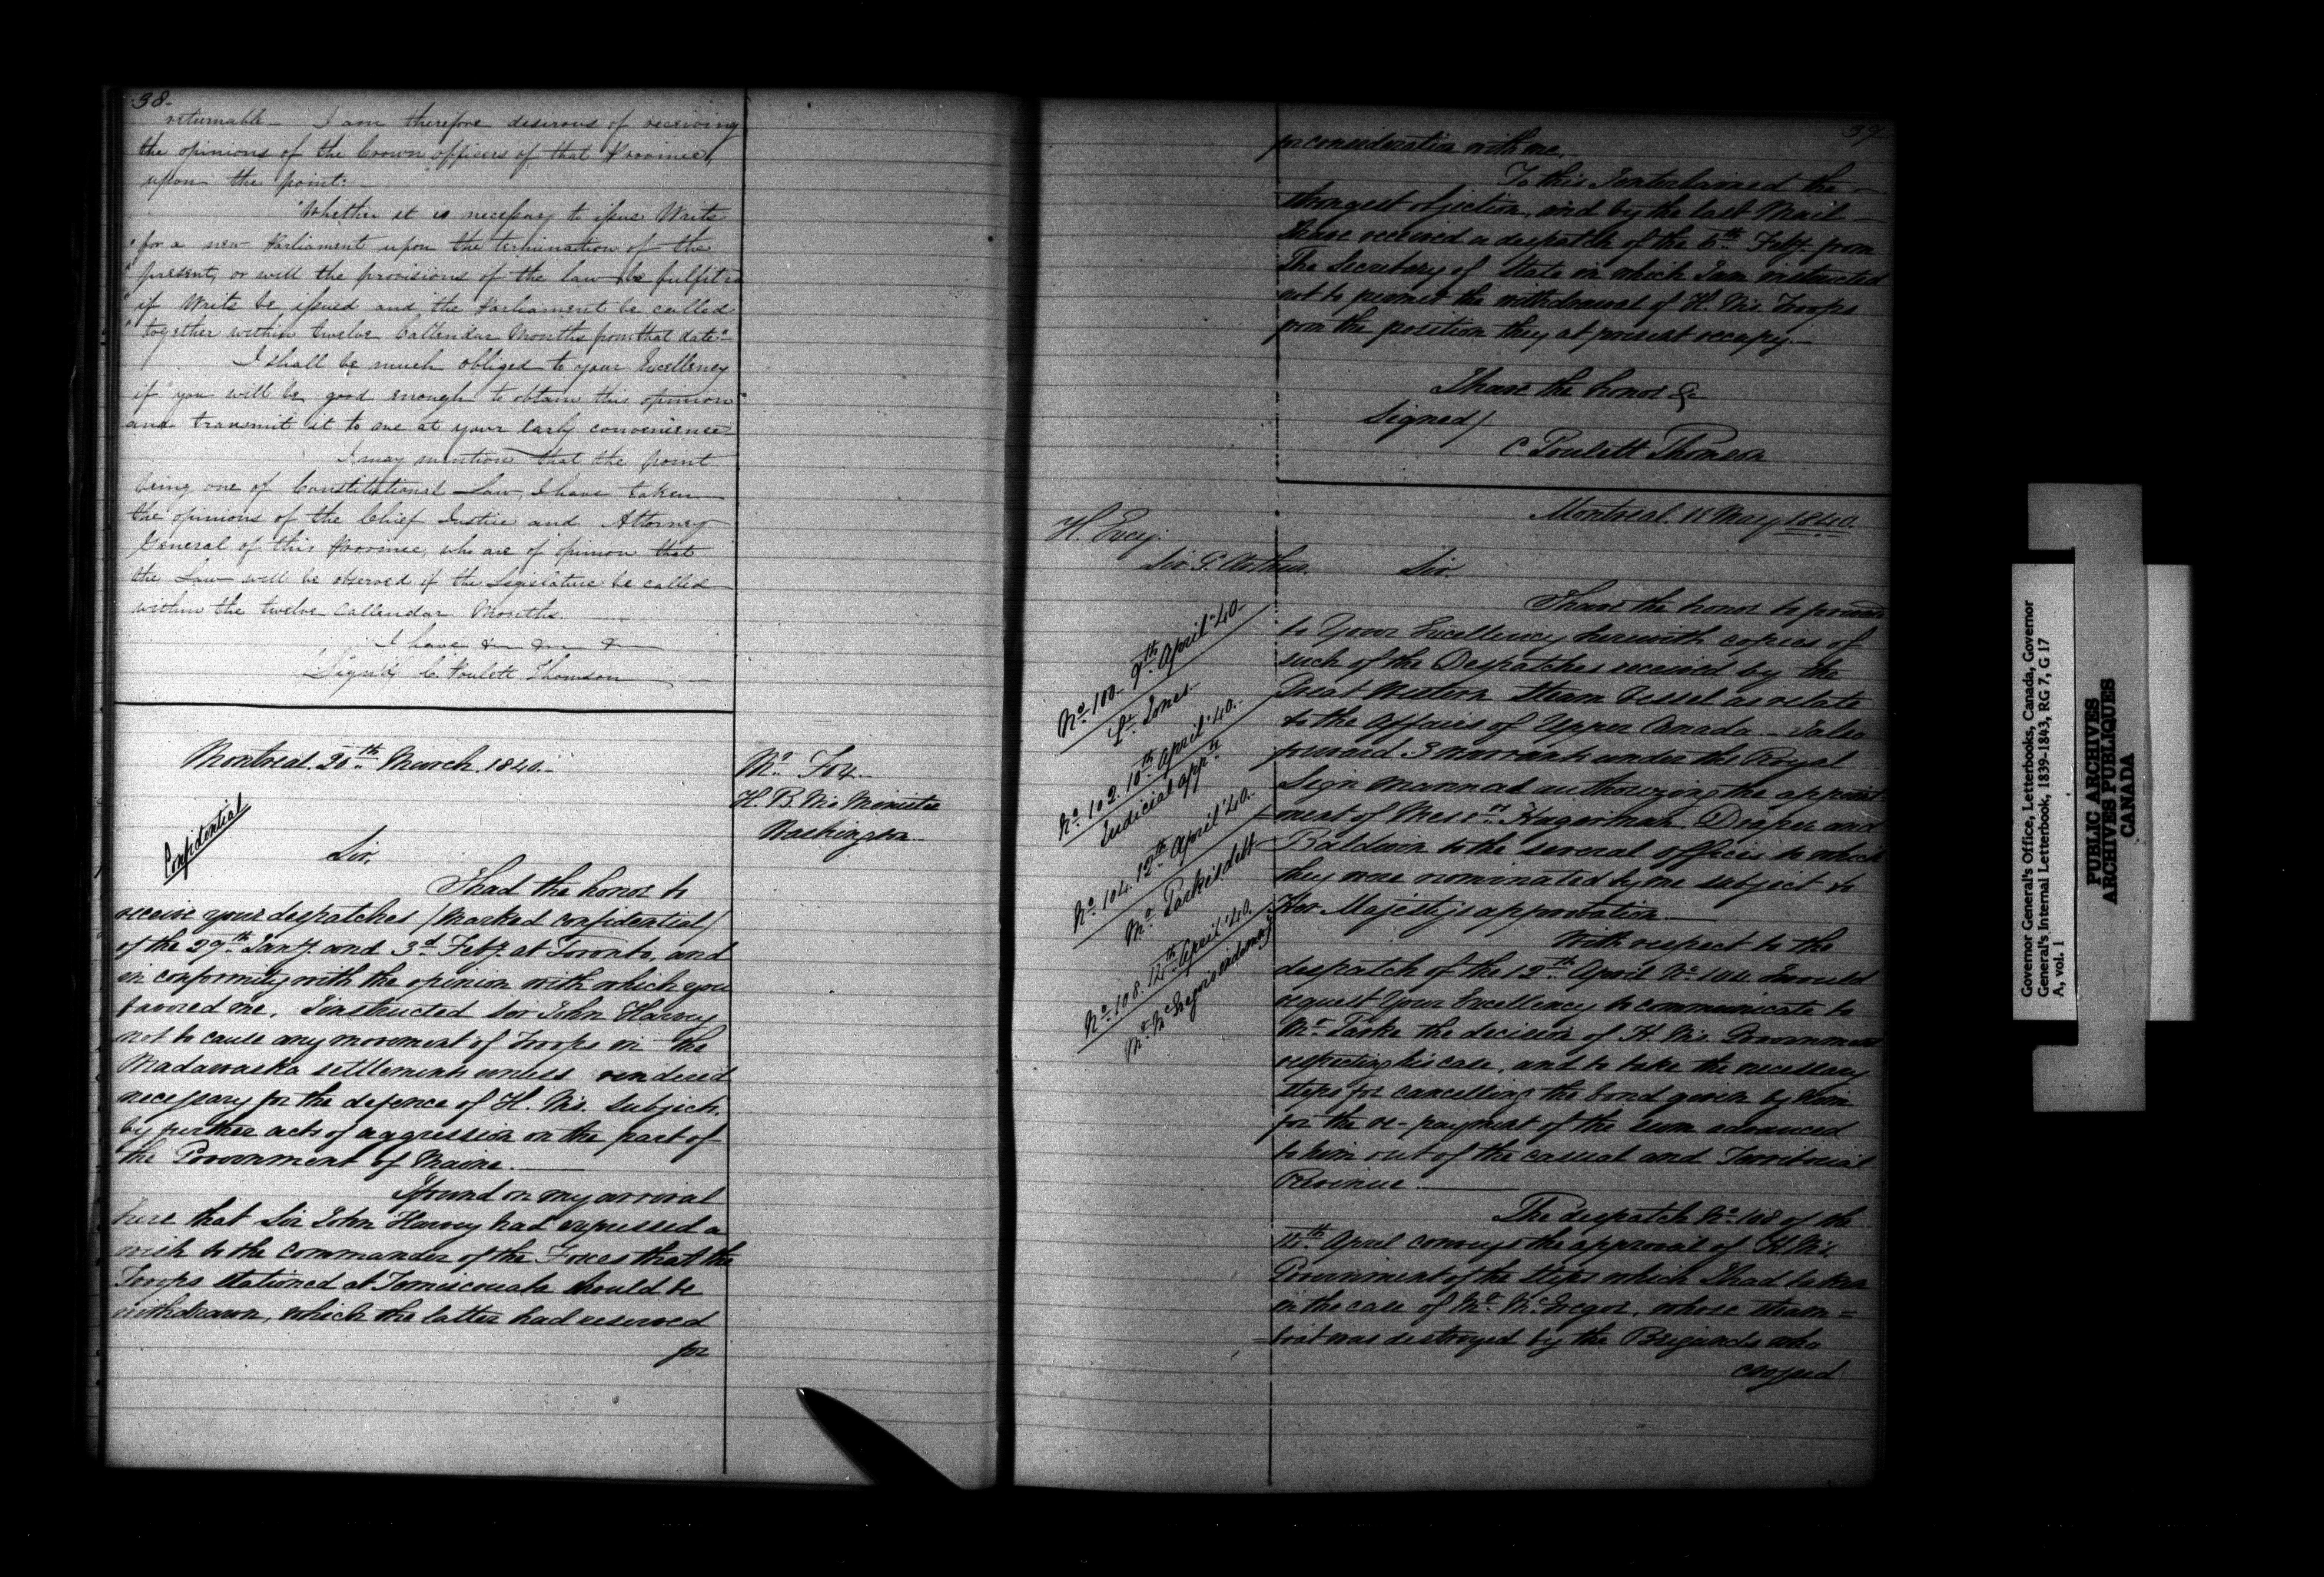 38-
returnable - I am therefore desirous of receiving
the opinions of the Crown officers of that Province,
upon the point: -
"Whether it is necessary to issue Writs
"for a new Parliament upon the termination of the
"present, or will the provisions of the law be fulfilled
"if Writs be issued and the Parliament be called
"together within twelve Callendar Months from that date"-
I shall be much obliged to your Excellency
if you will be good enough to obtain this opinion
and transmit it to me at your early convenience-
I may mention that the point
being one of Constitutional Law, I have taken
the opinions of the Chief Justice and Attorney
General of this Province, who are of opinion that
the Law will be observed if the Legislature be called
within the twelve Callendar Months.
I have &c &c &c
(Sign'd) C. Poulett Thomson
Montreal. 20th March 1840.-
Mr Fox.-
H. B. M's Minister
Washington.
Confidential
Sir,
I had the honor to
receive your despatches (Marked Confidential)
of the 29th Jany. and 3d Feby. at Toronto, and
in conformity with the opinion with which you
favored me, I instructed Sir John Harvey
not to cause any movement of Troops in the
Madawaska settlements unless rendered
necessary for the defence of H. M's. subjects.
by further acts of aggression on the part of
the Government of Maine.
I found on my arrival
here that Sir John Harvey had expressed a
wish to the Commander of the Forces that the
Troops stationed at Temiscouata should be
withdrawn, which the latter had reserved
for
39
for consideration with me.
To this I entertained the -
strongest objection, and by the last Mail -
I have received a despatch of the 6th Feby. from
The Secretary of State in which I am instructed
not to permit the withdrawal of H. M's. Troops
from the position they at present occupy.-
I have the honor &c
Signed/
C Poulett Thomson
Montreal. 11 May 1840.
H. Excy.
Sir G. Arthur.
Sir.
I have the honor to forward
to Your Excellency herewith copies of
such of the Despatches received by the
Great Western Steam Vessel as relate
to the Affairs of Upper Canada. - I also
forward 3 warrants under the Royal
Sign manual authorizing the appoint-
-ment of Messrs. Hagerman, Draper and
Baldwin to the several offices to which
they were nominated by me subject to
Her Majesty's approbation.
No. 100. 9th April '40-
Lt. Jones-
No. 102. 10th April '40.-
Judicial appts
No. 104. 12th April '40.-
Mr Parke's debt
No. 108. 15th April '40.
Mr. McGregor's indemy.
With respect to the
despatch of the 12th April No. 104. I would
request Your Excellency to communicate to
Mr Parke the decision of H. M's. Government
respecting his case, and to take the necessary
steps for cancelling the bond given by him
for the re-payment of the sum advanced
to him out of the casual and Territorial
Revenue.
The despatch No. 108 of the
15th April conveys the approval of H. M's.
Government of the steps which I had taken
in the case of Mr. McGregor, whose steam =
=boat was destroyed by the Brigands who
crossed
Governor General's Office, Letterbooks, Canada, Governor
General's Internal Letterbook, 1839-1843, RG 7, G 17
A, vol. 1
PUBLIC ARCHIVES
ARCHIVES PUBLIQUES
CANADA